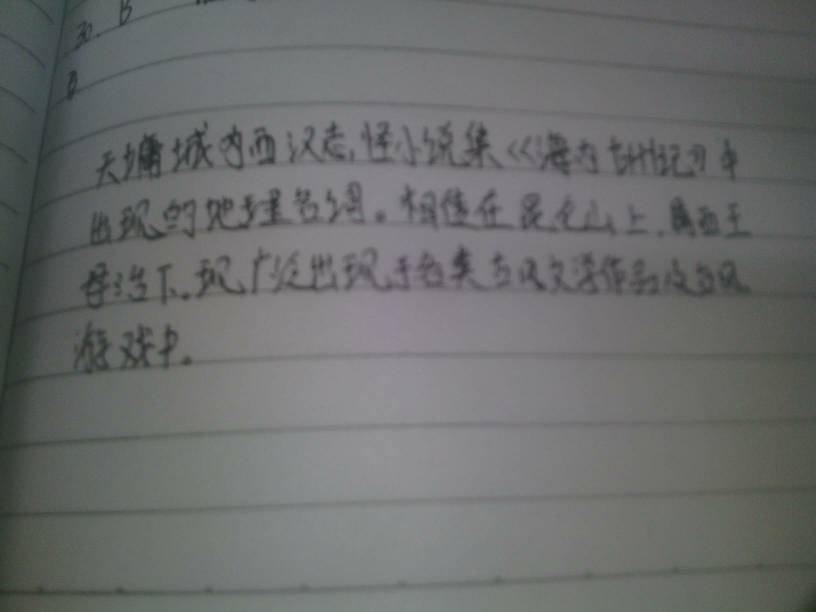 30. B
B
天墉城为西汉志怪小说集《海内十洲记》中
出现的地理名词。相传在昆仑山上，属西王
母治下，现广泛出现于各类古风文学作品及古风
游戏中。